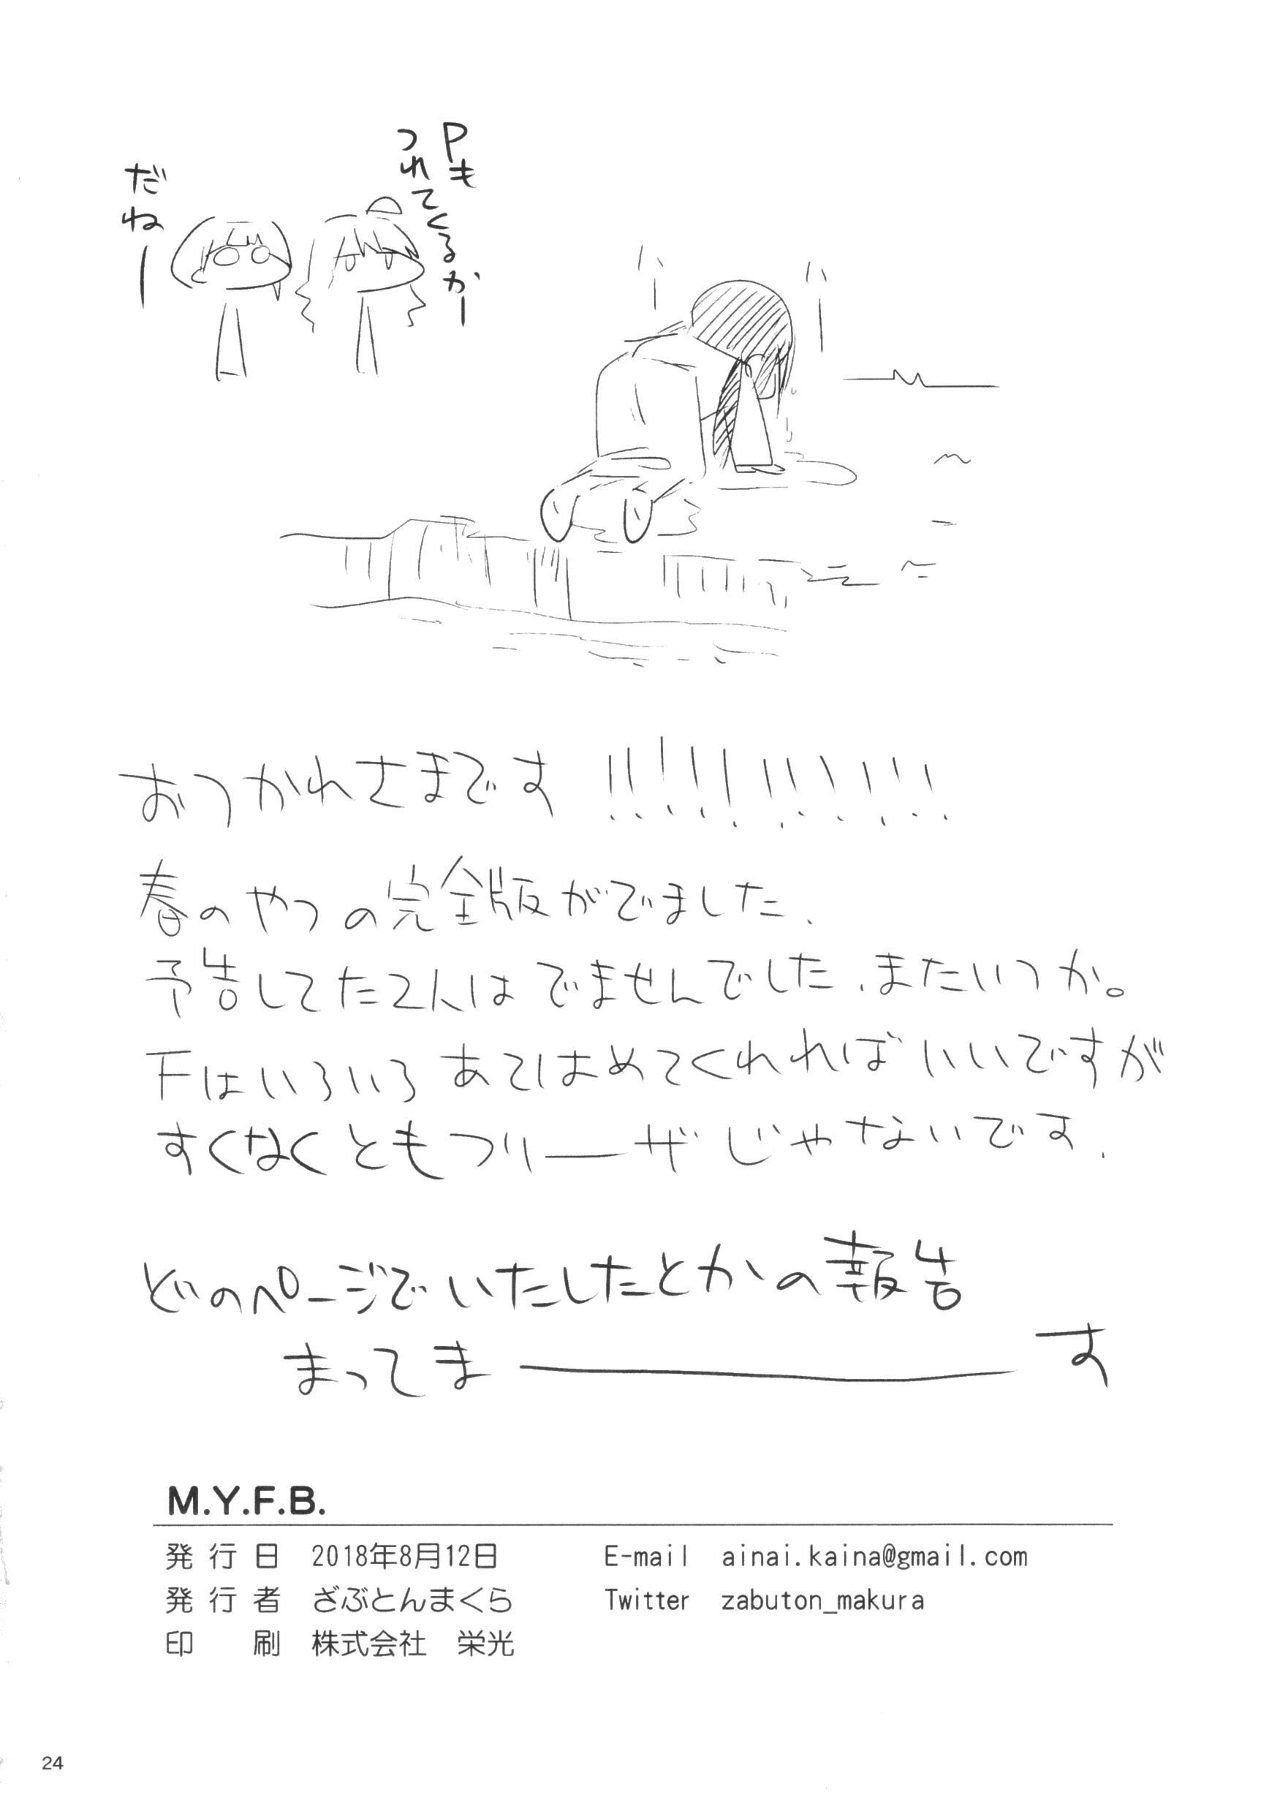 Pも
つれてくるかー
だねー
ハ
ハ
おつかれさまです！！！！！！！！！！！
春のやつの完全版がでました.
予告してた2人はでませんでした. またいつか。
Fはいろいろあてはめてくれればいいですが
すくなくともフリーザじゃないです.
どのページでいたしたとかの報告
まってまーーーす
M.Y.F.B.
発行日 2018年8月12日 E-mail ainai.kaina@gmail.com
発行者 ざぶとんまくら Twitter zabuton_makura
印刷 株式会社 栄光
24